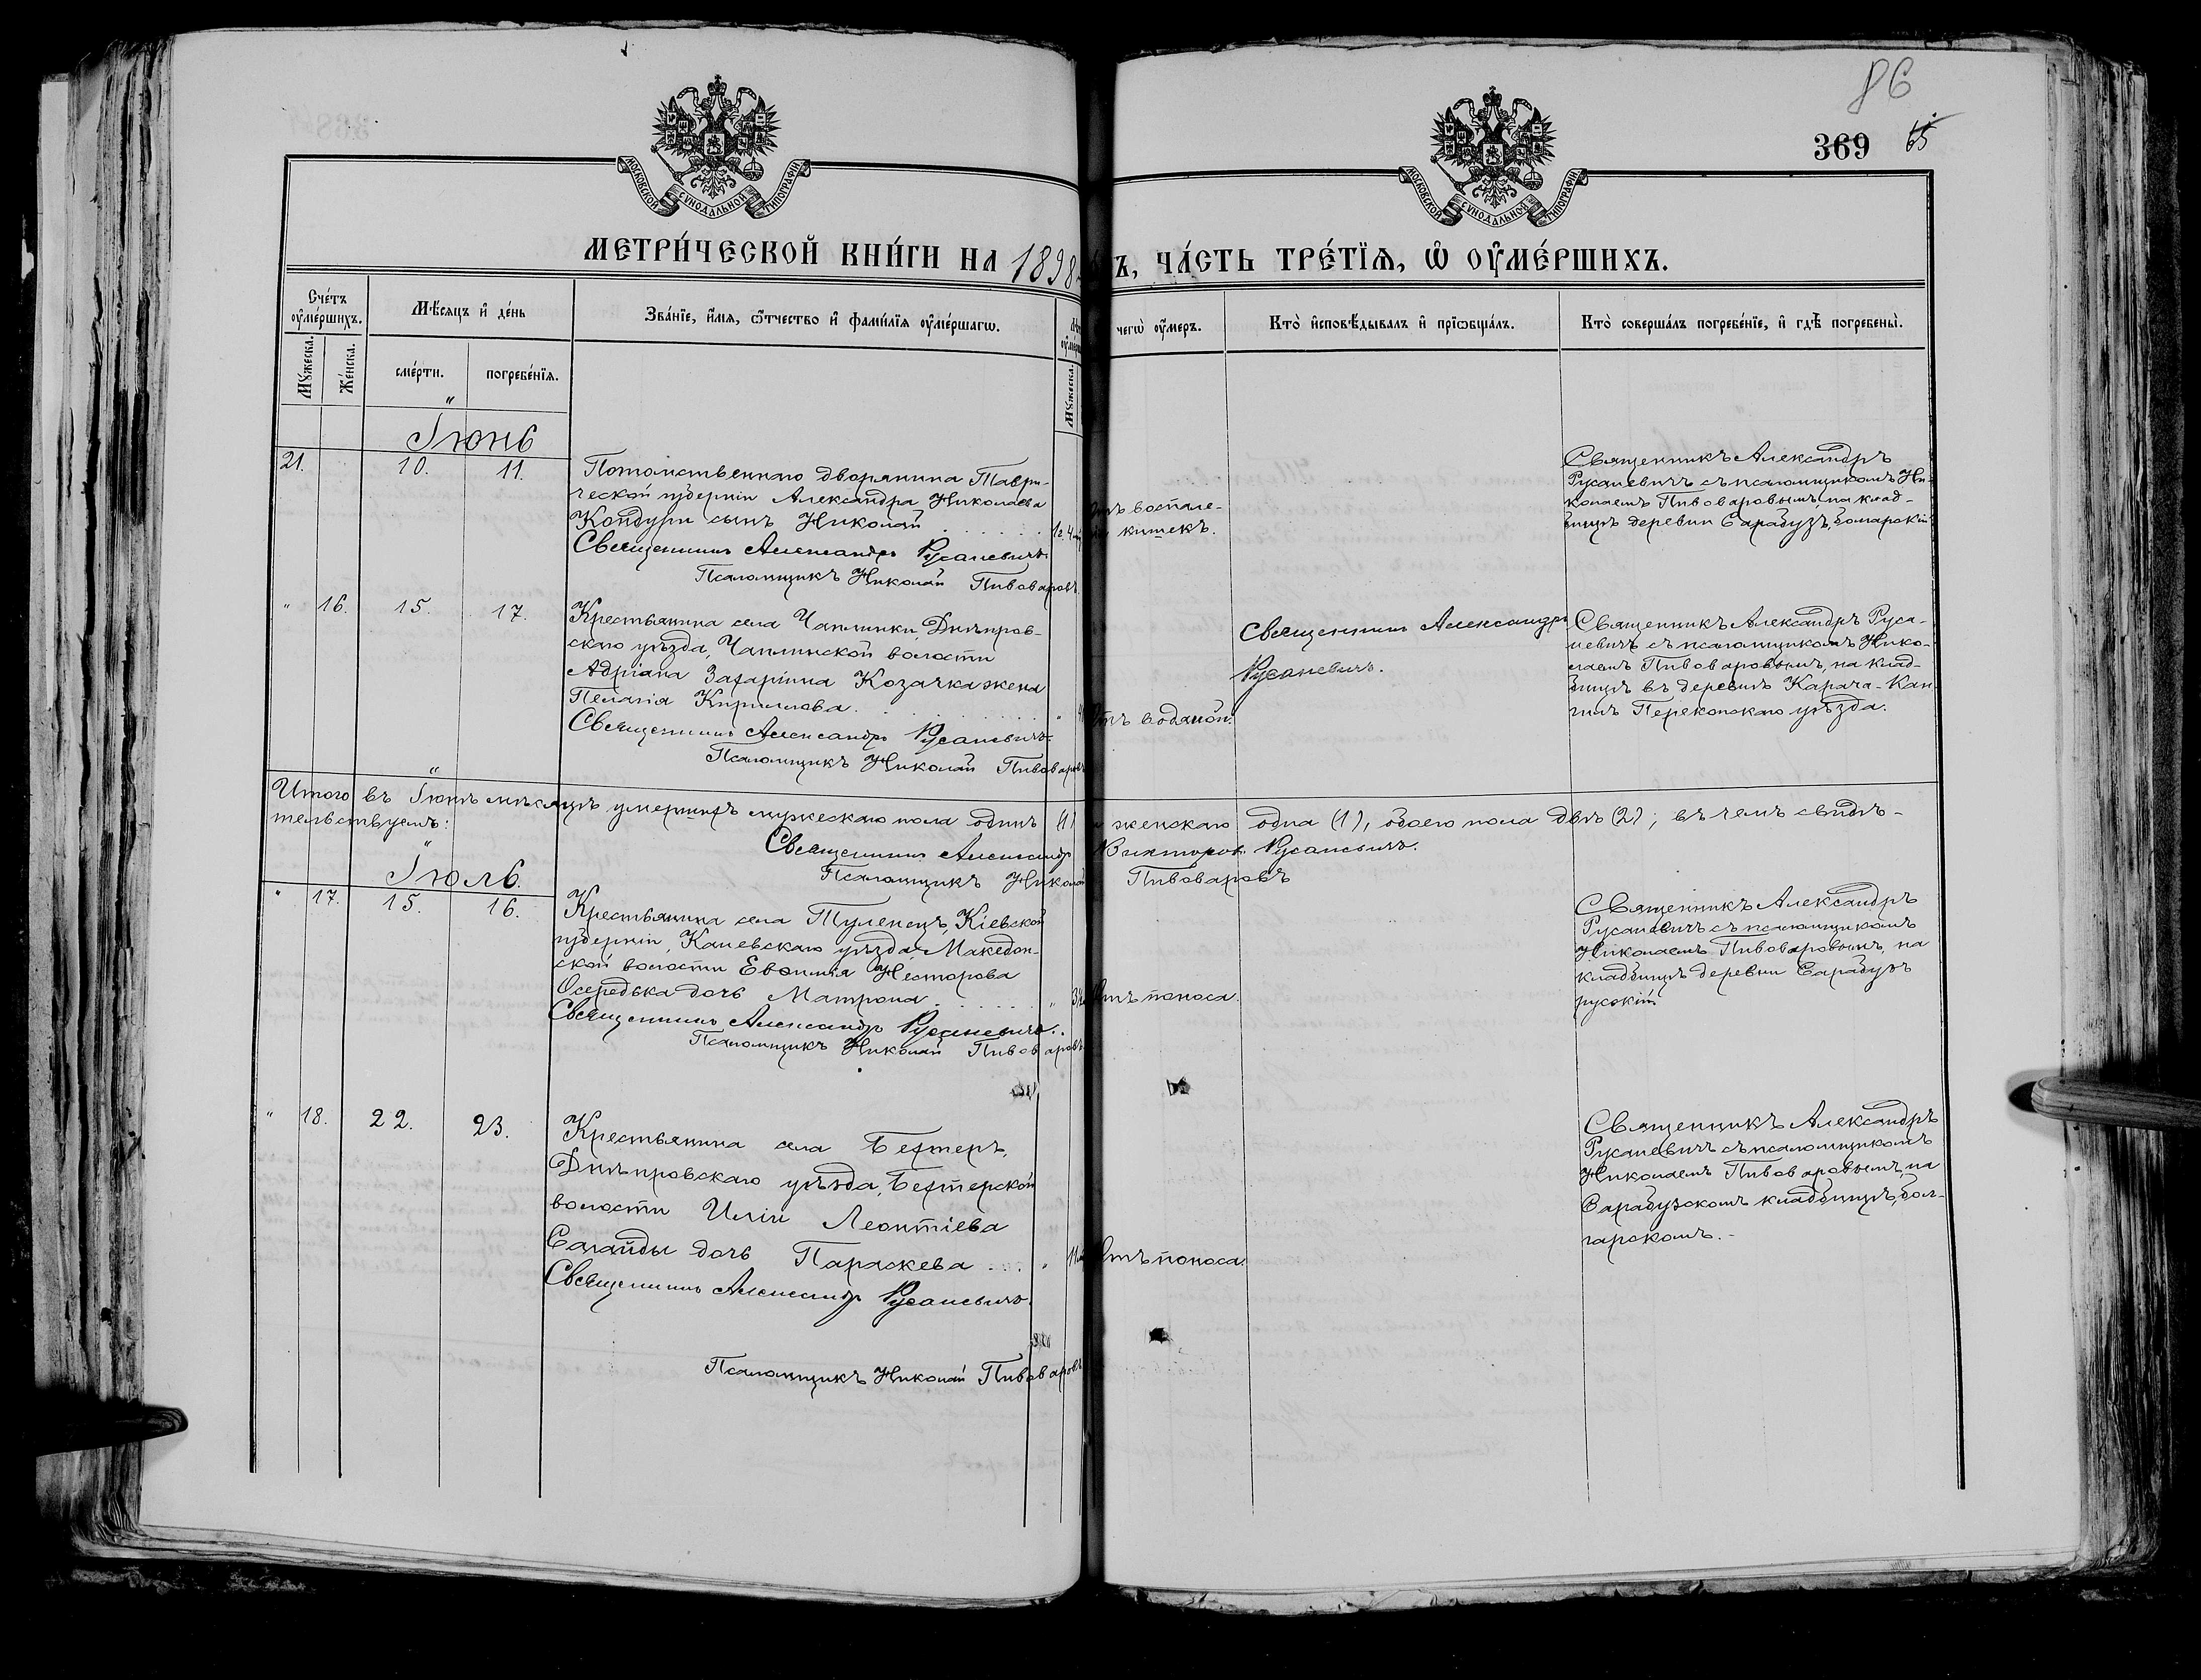 86
369 65
МОСКОВСКОЙ СѴНОДАЛЬНОЙ ТИПОГРАФІИ
МОСКОВСКОЙ СѴНОДАЛЬНОЙ ТИПОГРАФІИ
МЕТРИ́ЧЕСКОЙ КНИ́ГИ НА 1898
Ъ, ЧА́СТЬ ТРЕ́ТЇѦ, Ѡ҆ ОУ҆МЕ́РШИХЪ.
Сче́тъ оу҆ме́ршихъ.
Мѣ́сяцъ и҆ де́нь
Зва́нїе, и҆́мѧ, ѻ҆́тчество и҆ фами́лїѧ оу҆ме́ршагѡ.
чегѡ̀ оу҆́меръ.
Кто̀ и҆сповѣ́дывалъ и҆ прїѡбща́лъ.
Кто̀ соверша́лъ погребе́нїе, и҆ гдѣ̀ погребены̀.
Мꙋ́жеска.
Же́нска.
сме́рти.
погребе́нїѧ.
Мꙋ́жеска.
Іюнь
21. 10. 11.
Потомственнаго дворянина Таври-
ческой губерніи Александра Николаева
Кондури сынъ Николай
Священникъ Александръ Русаневичъ.
Псаломщикъ Николай Пивоваровъ.
1г. 4
воспале-
кишекъ.
Священникъ Александръ
Русаневичъ съ псаломщикомъ Ни-
колаемъ Пивоваровымъ, на клад-
бищѣ деревни Сарабузъ,
" 16. 15. 17.
Крестьянина села Чаплинки, Днѣпров-
скаго уѣзда, Чаплинской волости
Адріана Захаріина Козачка жена
Пелагія Кириллова.
Священникъ Александръ Русаневичъ.
Псаломщикъ Николай Пивоваровъ
Отъ водяной.
Священникъ Александръ
Русаневичъ.
Священникъ Александръ Руса-
невичъ съ псаломщикомъ Нико-
лаемъ Пивоваровымъ, на клад-
бищѣ въ деревнѣ Карача-Кан-
гилъ Перекопскаго уѣзда.
Итого въ Іюнѣ мѣсяцѣ умершихъ мужескаго пола одинъ (1) женскаго одна (1), обоего пола двѣ (2); въ чемъ свидѣ-
тельствуемъ:
Священникъ Александръ Викторовъ Русаневичъ.
Псаломщикъ Николай Пивоваровъ
Іюль.
" 17. 15. 16.
Крестьянина села Тулинецъ, Кіевской
губерніи, Каневскаго уѣзда, Македон-
ской волости Евѳимія Несторова
Осередька дочь Матрона
Священникъ Александръ Русаневичъ.
Псаломщикъ Николай Пивоваровъ
Отъ поноса.
Священникъ Александръ
Русаневичъ съ псаломщикомъ
Николаемъ Пивоваровымъ, на
кладбищѣ деревни Сарабузъ
русскій
" 18. 22. 23.
Крестьянина села Бехтеръ,
Днѣпровскаго уѣзда, Бехтерской
волости Иліи Леонтіева
Сагайды дочь Параскева
Священникъ Александръ Русаневичъ.
Псаломщикъ Николай Пивоваровъ
Отъ поноса.
Священникъ Александръ
Русаневичъ съ псаломщикомъ
Николаемъ Пивоваровымъ, на
Сарабузскомъ кладбищѣ, бол-
гарскомъ.